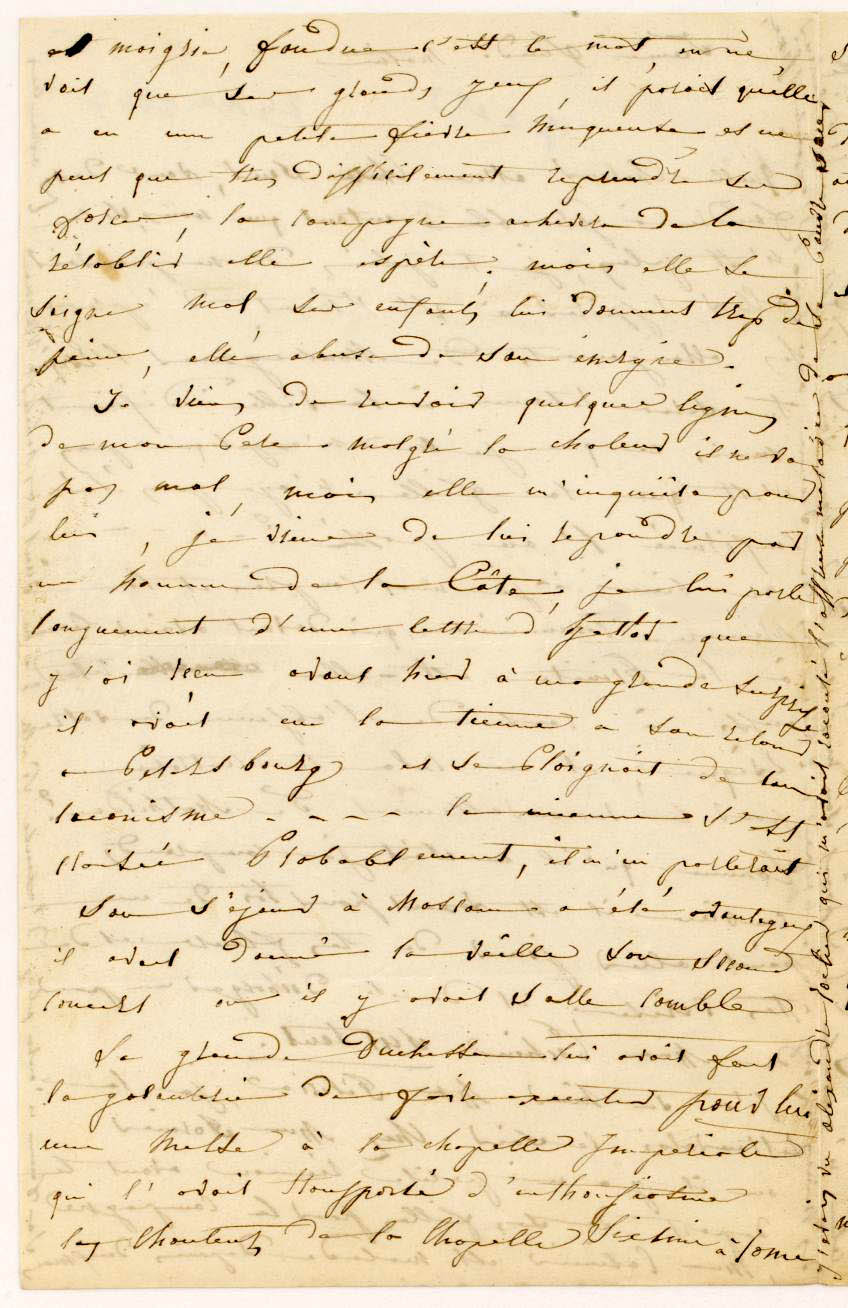 et moigrie, fondue c'est le mot, on ne
voit que ses grands yeux, il paroit qu'elle
a eu une petite fièvre muqueuse et ne
peut que tres difficilement reprendre ses
forces, la campagne achevera de la
rétablir elle espère, mais elle se
soigne mal, ses enfants lui donnent trop de
peine, elle abuse de son énergie.
Je viens de recevoir quelques lignes
de mon Pere. malgré la chaleur il ne va
pas mal, mais elle m'inquiète pour
lui, je viens de lui repondre par
un homme de la Côte, je lui parle
longuement d'une lettre d' que
j'ai recu avant hier à ma grande surprise
il avait eu la tienne a son retour
a Petersbourg et se Ploignoit de ton
laconisme - - - - la mienne s'est
croisée Probablement, il m'en parlerait
Son séjour à Moscou a été avantageux
il avait donné la veille son second
concert ou il y avoit salle comble
La grande Duchesse lui avoit fait
la galanterie de faire executer pour lui
une Messe à la chapelle Imperiale
qui l'avait transporté d'enthousiasme
les Chanteurs de la Chapelle Sixtine à Rome